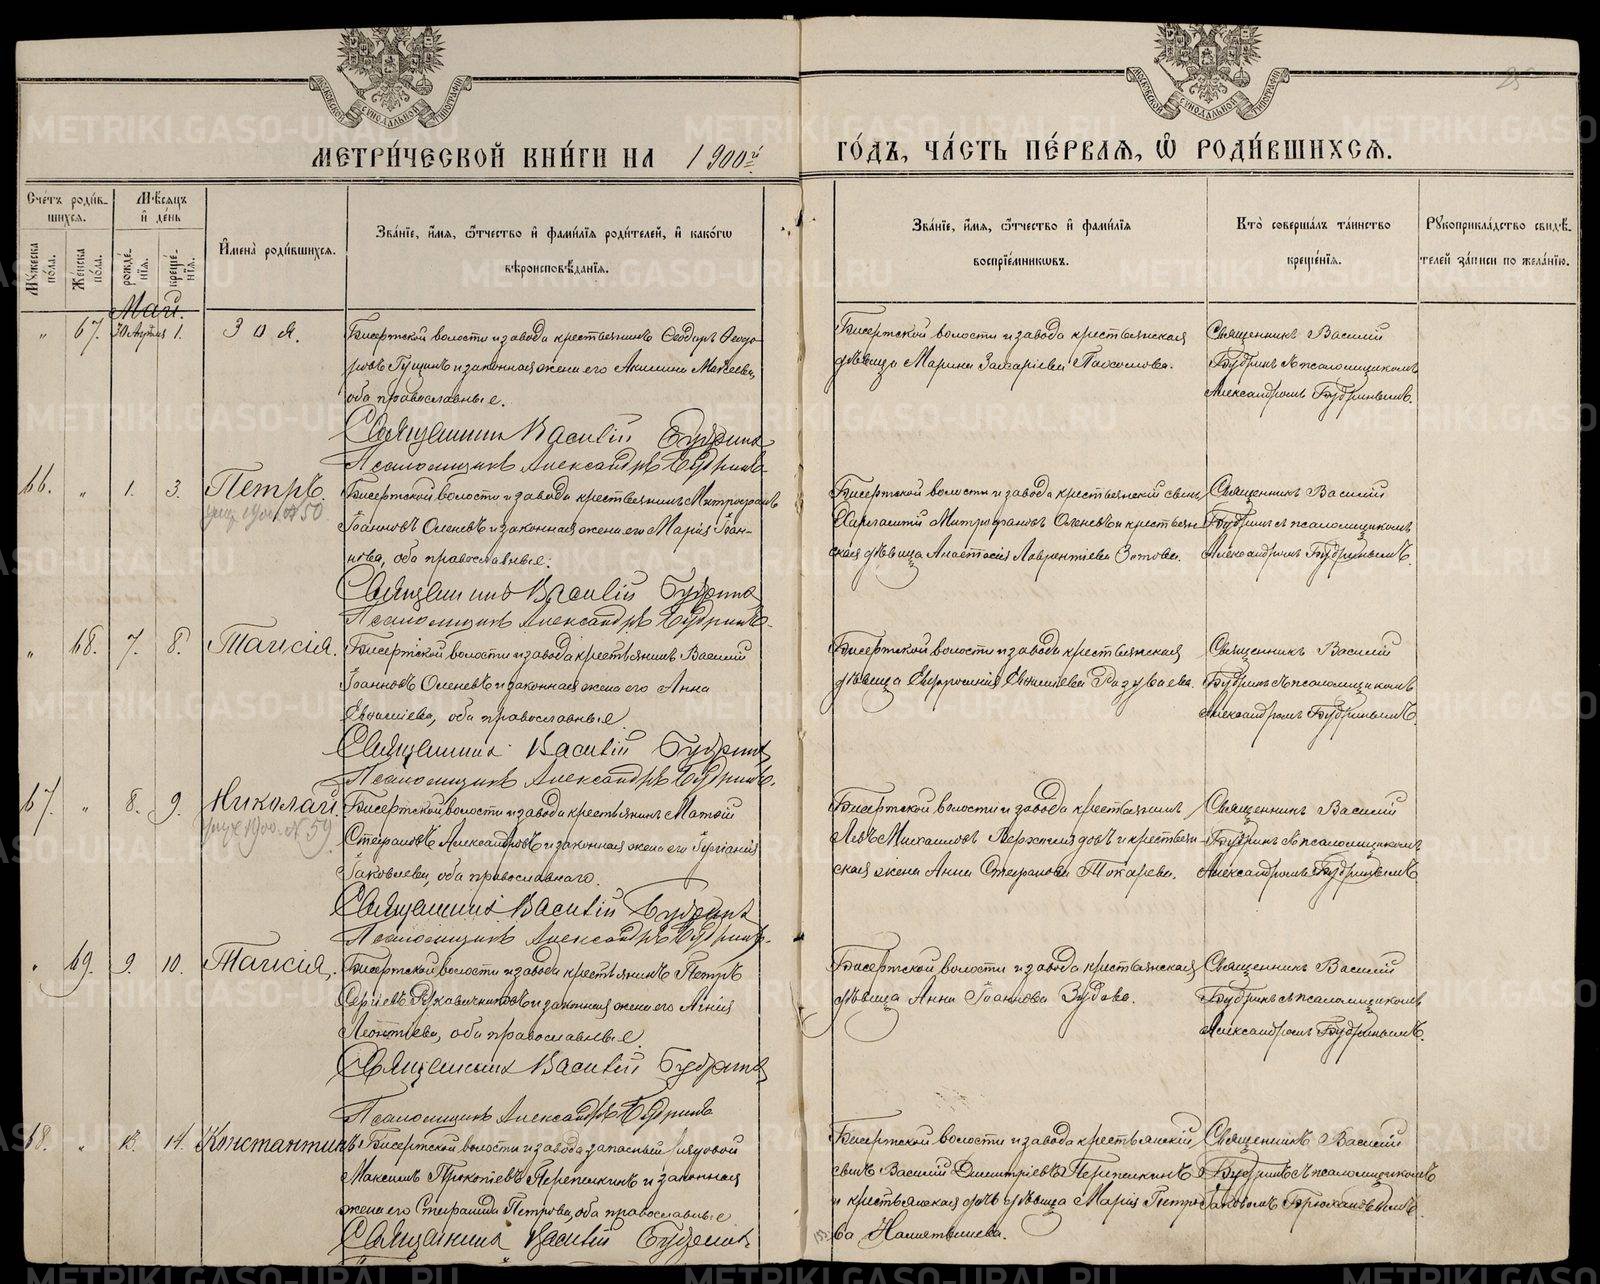 МОСКОВСКОЙ СѴНОДАЛЬНОЙ ТИПОГРАФІИ
МОСКОВСКОЙ СѴНОДАЛЬНОЙ ТИПОГРАФІИ
25
МЕТРИ́ЧЕСКОЙ КНИ́ГИ НА 1900й
ГО́ДЪ, ЧА́СТЬ ПЕ́РВАѦ, Ѡ҆ РОДИ́ВШИХСѦ.
Сче́тъ роди́в-
шихся.
Мꙋ́жеска по́ла.
Же́нска по́ла.
Мѣ́сяцъ и҆ де́нь
рожде́-нїя.
креще́-нїя.
И҆мена̀ роди́вшихся.
Зва́нїе, и҆́мя, ѻ҆́тчество и҆ фами́лїя роди́телей, и҆ како́гѡ
вѣроисповѣ́данїя.
Зва́нїе, и҆́мя, ѻ҆́тчество и҆ фами́лїя
воспрїе́мниковъ.
Кто̀ соверша́лъ та́инство
креще́нїя.
Рꙋкоприкла́дство свидѣ́-
телей за́писи по жела́нїю.
Май.
" 67. 30 Апрѣля 1. Зоя.
Бисертской волости и завода крестьянинъ Ѳеодоръ Ѳеодо-
ровъ Гущинъ и законная жена его Акилина Моѵсеева,
оба православные.
Священникъ Василій Будринъ
Псаломщикъ Александръ Будринъ
Бисертской волости и завода крестьянская
дѣвица Марина Захаріева Пахомова.
Священникъ Василій
Будринъ съ псаломщикомъ
Александромъ Будринымъ.
66. " 1. 3. Петръ.
1900 № 50
Бисертской волости и завода крестьянинъ Митрофанъ
Іоанновъ Оленевъ и законная жена его Марія Іоан-
нова, оба православные.
Священникъ Василій Будринъ
Псаломщикъ Александръ Будринъ.
Бисертской волости и завода крестьянскій сынъ
Харлампій Митрофановъ Оленевъ и крестьян-
ская дѣвица Анастасія Лаврентіева Зотова.
Священникъ Василій
Будринъ съ псаломщикомъ
Александромъ Будринымъ.
" 68. 7. 8. Таисія.
Бисертской волости и завода крестьянинъ Василій
Іоанновъ Оленевъ и законная жена его Анна
Евѳиміева, оба православные.
Священникъ Василій Будринъ
Псаломщикъ Александръ Будринъ.
Бисертской волости и завода крестьянская
дѣвица Евфросинія Евѳиміева Разуваева.
Священникъ Василій
Будринъ съ псаломщикомъ
Александромъ Будринымъ.
67. " 8. 9. Николай.
1900. № 59
Бисертской волости и завода крестьянинъ Матѳій
Стефановъ Александровъ и законная жена его Іуліанія
Іаковлева, оба православнаго.
Священникъ Василій Будринъ
Псаломщикъ Александръ Будринъ.
Бисертской волости и завода крестьянинъ
Левъ Михаиловъ и крестьян-
ская жена Анна Стефанова Токарева.
Священникъ Василій
Будринъ съ псаломщикомъ
Александромъ Будринымъ.
" 69. 9. 10. Таисія.
Бисертской волости и завода крестьянинъ Петръ
Сергіевъ Рукавичниковъ и законная жена его Агнія
Леонтіева, оба православные.
Священникъ Василій Будринъ
Псаломщикъ Александръ Будринъ
Бисертской волости и завода крестьянская
дѣвица Анна Іоаннова Зудова.
Священникъ Василій
Будринъ съ псаломщикомъ
Александромъ Будринымъ.
68. " 13. 14. Константинъ.
Бисертской волости и завода запасный рядовой
Максимъ Прокопіевъ Перепелкинъ и законная
жена его Стефанида Петрова, оба православные
Священникъ Василій Будринъ
Бисертской волости и завода крестьянскій
сынъ Василій Димитріевъ Перепелкинъ
и крестьянская дочь дѣвица Марія Петро-
ва
Священникъ Василій
Будринъ съ псаломщикомъ
Іаковомъ Брюхановымъ.
METRIKI.GASO-URAL.RU